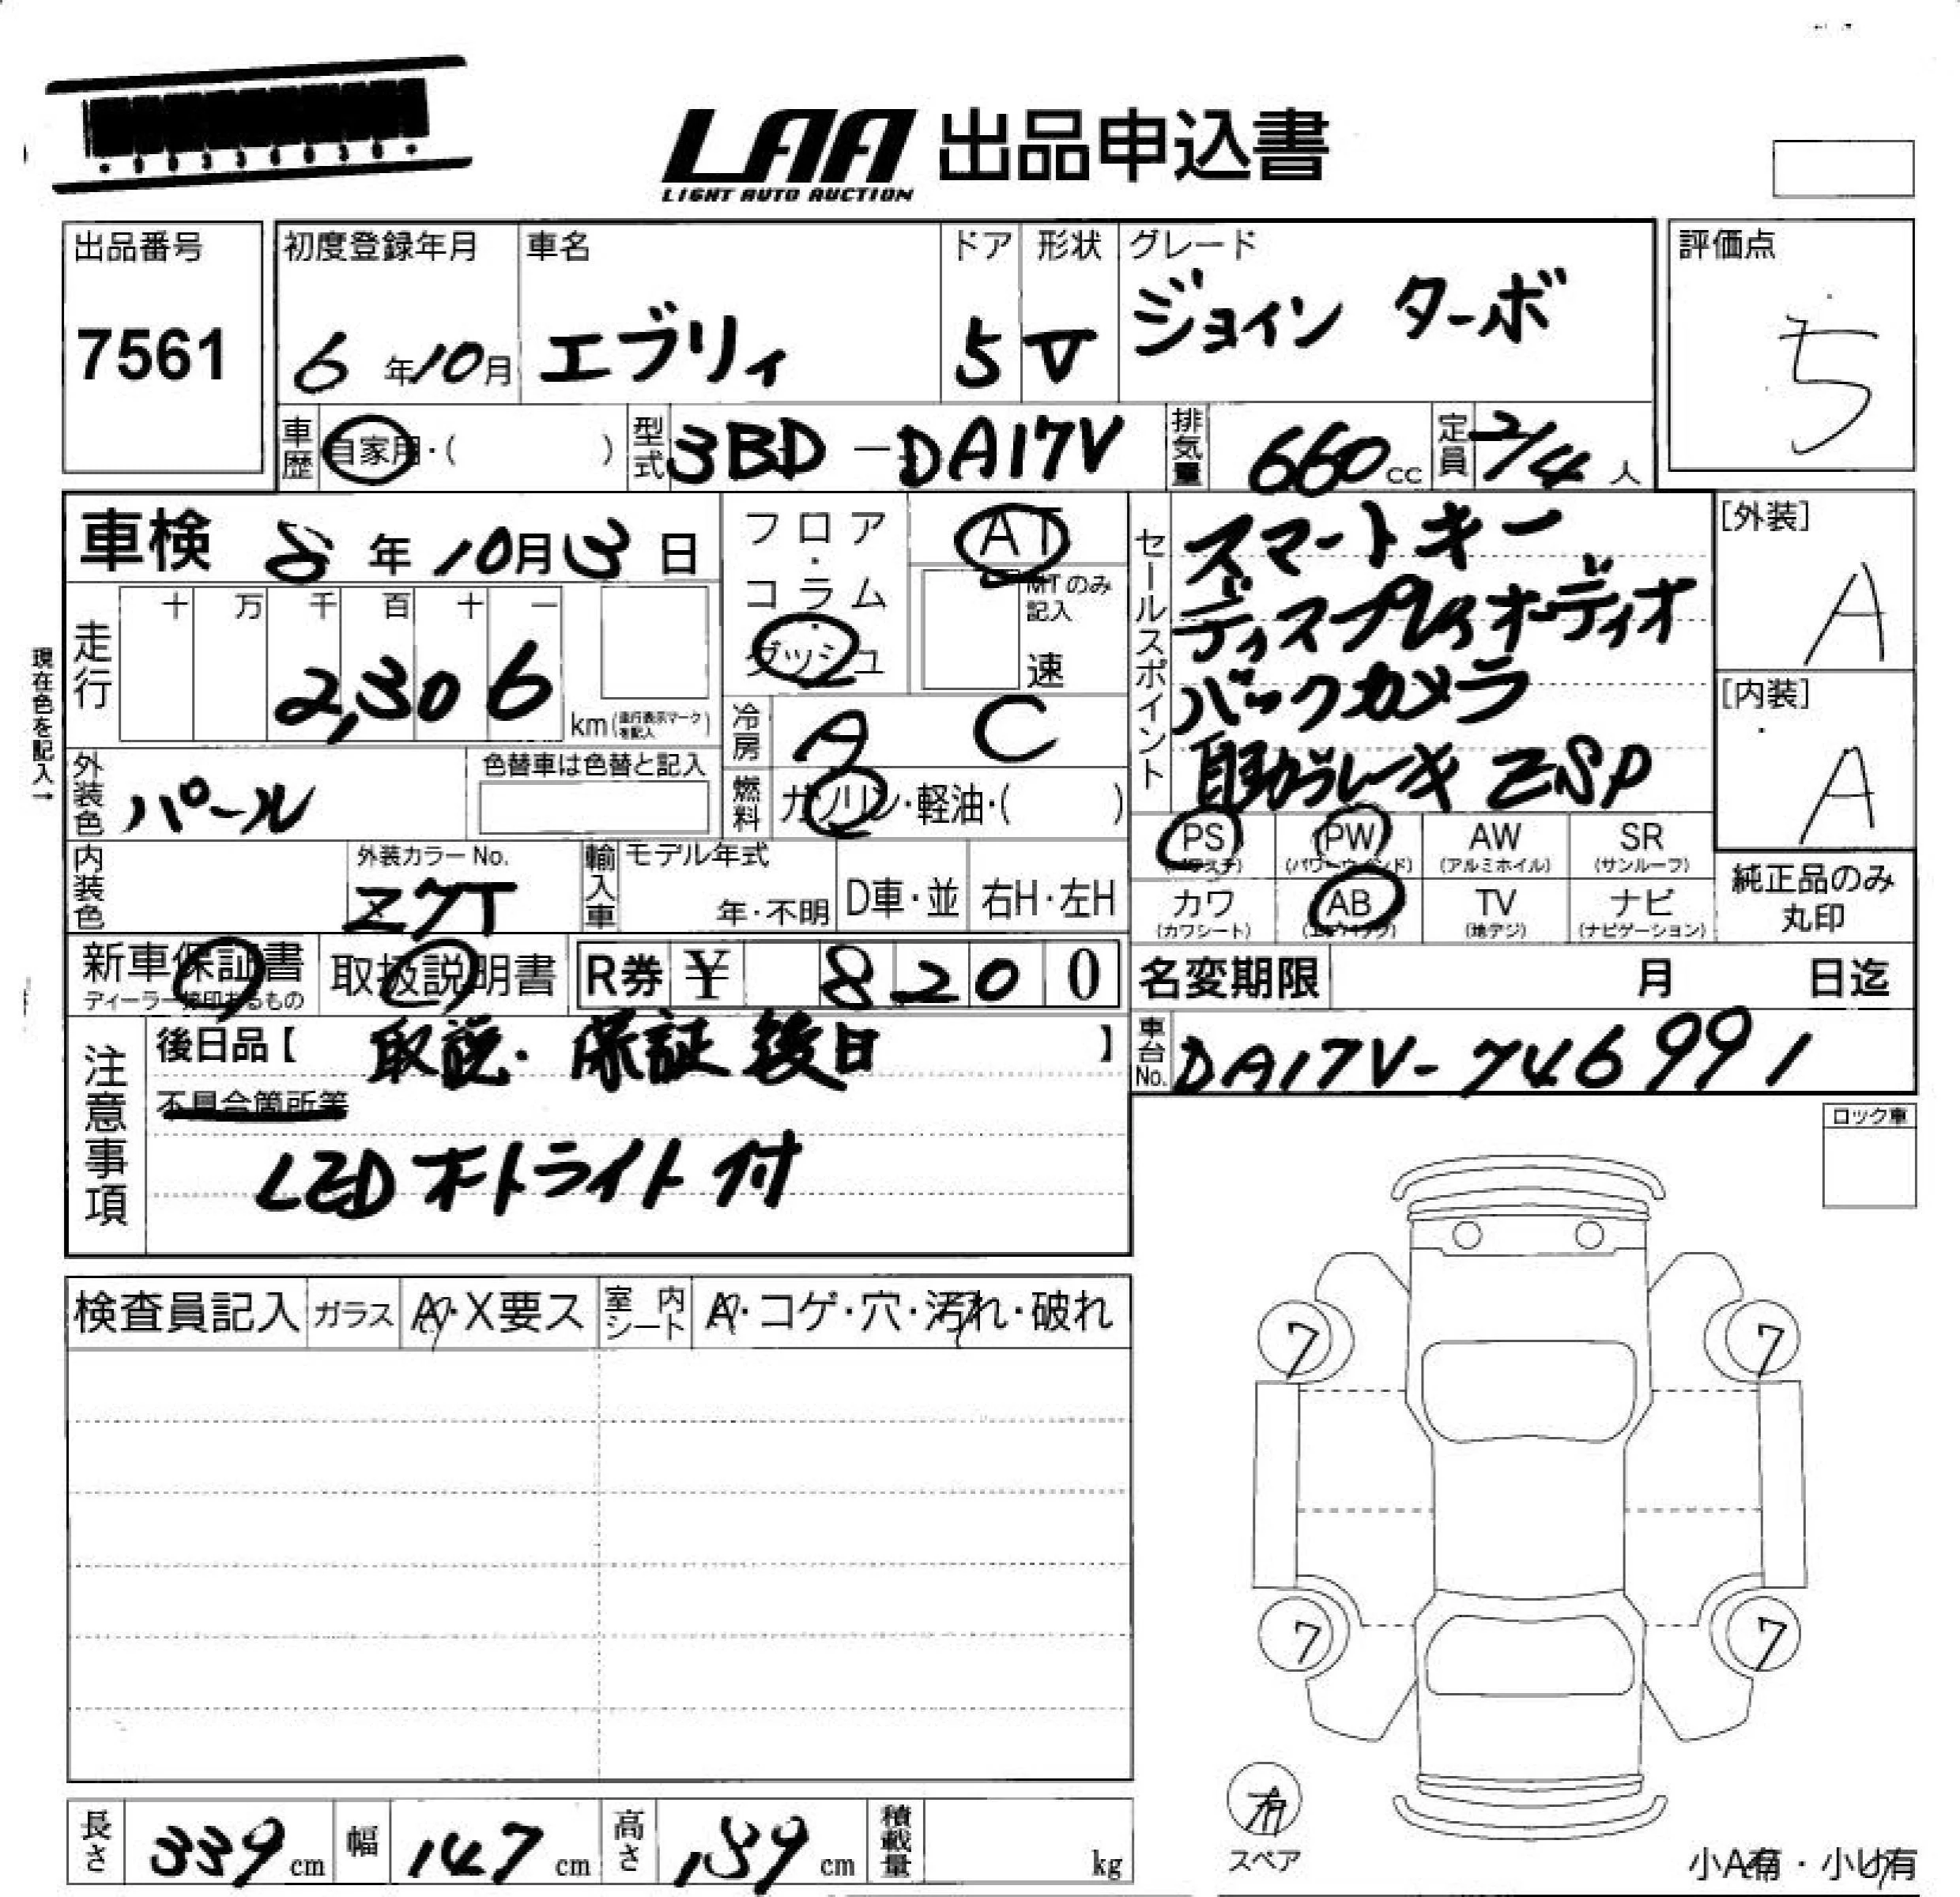 LAA 出品申込書
LIGHT AUTO AUCTION
出品番号
7561
初度登録年月
6年10月
車名
エブリィ
ドア
5
形状
V
グレード
ジョイン ターボ
評価点
5
車歴
自家用・( )
型式
3BD-DA17V
排気量
660cc
定員
2/4人
車検 8年10月13日
フロア・コラム・ダッシュ
AT
MTのみ記入
速
セールスポイント
スマートキー
ディスプレイオーディオ
バックカメラ
自動ブレーキ ESP
[外装]
A
[内装]
A
現在色を記入→
走行
十 万 千 百 十 一
2,306
km(走行表示マークを記入)
冷房
AC
外装色
パール
色替車は色替と記入
燃料
ガソリン・軽油・( )
PS
(パワステ)
PW
(パワーウインド)
AW
(アルミホイル)
SR
(サンルーフ)
カワ
(カワシート)
AB
(エアバッグ)
TV
(地デジ)
ナビ
(ナビゲーション)
純正品のみ
丸印
内装色
外装カラーNo.
Z7T
輸入車
モデル年式
年・不明
D車・並
右H・左H
新車保証書
ディーラー捺印あるもの
取扱説明書
R券 ¥ 8200
名変期限 月 日迄
注意事項
後日品【 取説・保証 後日 】
不具合箇所等
LEDオートライト付
車台No.
DA17V-746991
ロック車
検査員記入
ガラス
A・X要ス
室内シート
A・コゲ・穴・汚れ・破れ
7
7
7
7
有
スペア
長さ
339cm
幅
147cm
高さ
189cm
積載量
kg
小A有・小U有